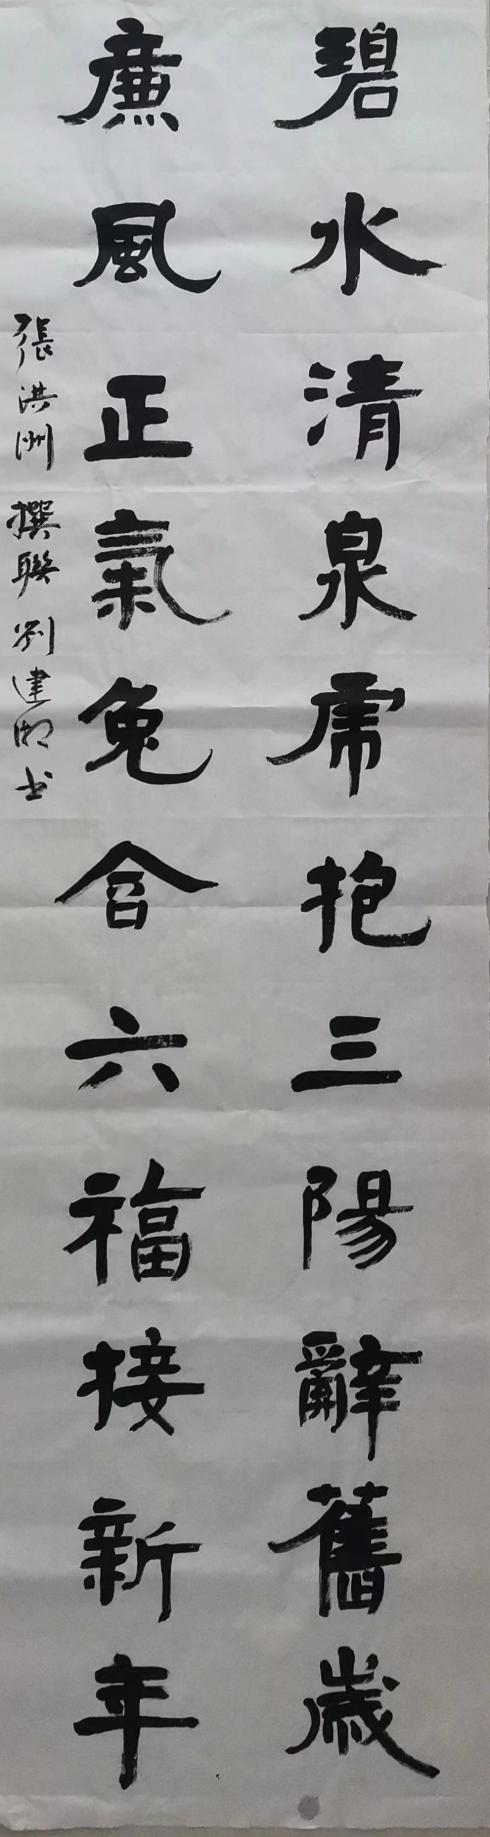 碧水清泉虎抱三陽辭舊歲
廉風正氣兔含六福接新年
張洪洲撰聯劉建湘书